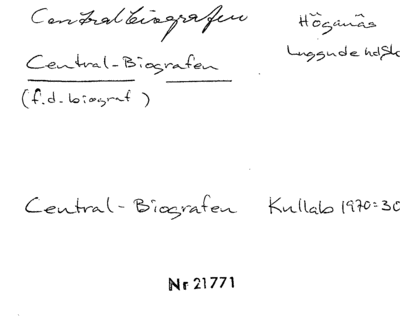 Centralbiografen
Höganäs
Central-Biografen
Luggude hd, Sk
(f.d. biograf)
Central-Biografen Kullab 1970:30
Nr 21771